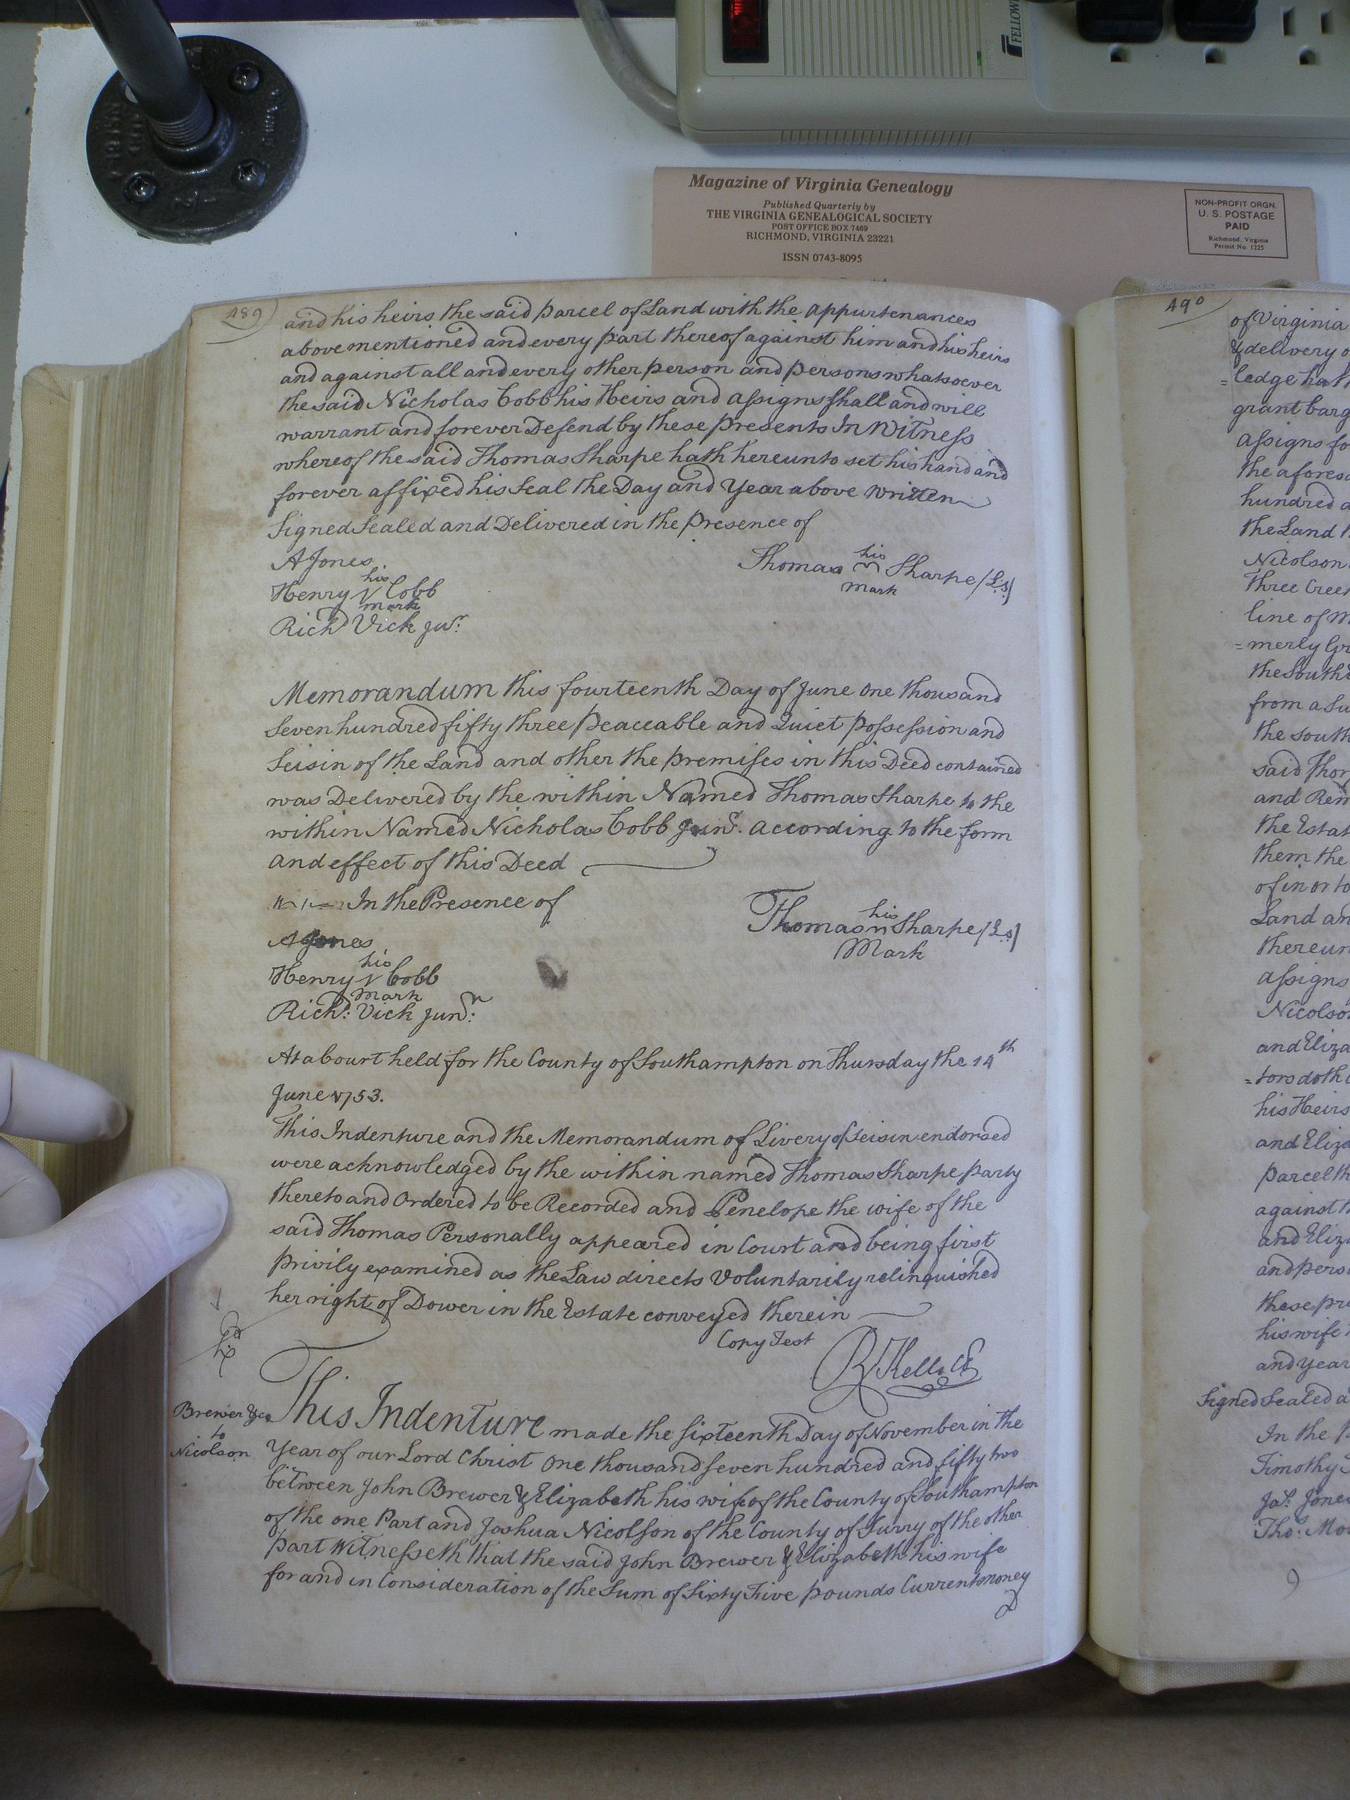 FELLOW
Magazine of Virginia Genealogy
Published Quarterly by
THE VIRGINIA GENEALOGICAL SOCIETY
POST OFFICE BOX 7469
RICHMOND, VIRGINIA 23221
ISSN 0743-8095
NON-PROFIT ORGN.
U. S. POSTAGE
PAID
Richmond, Virginia
Permit No. 1225
489
and his heirs the said parcel of Land with the appurtenances
above mentioned and every part thereof against him and his heirs
and against all and every other person and persons whatsoever
the said Nicholas Cobb his Heirs and assigns shall and will
warrant and forever Defend by these presents In Witness
whereof the said Thomas Sharpe hath hereunto set his hand and
forever affixed his Seal the Day and Year above written
Signed Sealed and Delivered in the presence of
A Jones
Thomas his mark Sharpe (LS)
Henry his mark Cobb
Richd Vick Junr
Memorandum this fourteenth Day of June One thousand
Seven hundred fifty three peaceable and Quiet possession and
Seisin of the Land and other the premises in this Deed contained
was Delivered by the within Named Thomas Sharpe to the
within Named Nicholas Cobb Junr. according to the form
and effect of this Deed
In the Presence of
Thomas his Mark Sharpe (LS)
A Jones
Henry his mark Cobb
Richd: Vick Junr:
At a Court held for the County of Southampton on Thursday the 14th
June 1753.
This Indenture and the Memorandum of Livery of Seisin endorsed
were acknowledged by the within named Thomas Sharpe party
thereto and Ordered to be Recorded and Penelope the wife of the
said Thomas Personally appeared in Court and being first
privily examined as the Law directs Voluntarily relinquished
her right of Dower in the Estate conveyed therein
Copy Test
R Kello Cl
Brewer &c
to
Nicolson
This Indenture made the sixteenth Day of November in the
Year of our Lord Christ One thousand seven hundred and fifty two
between John Brewer & Elizabeth his wife of the County of Southampton
of the one Part and Joshua Nicolson of the County of Surry of the other
part Witnesseth that the said John Brewer & Elizabeth his wife
for and in Consideration of the Sum of Sixty Five pounds Current money
490
of Virginia
& delivery
=ledge hath
grant barg
assigns fo
the afores
hundred a
the Land
Nicolson
Three Creek
line of
=merly Gr
the South
from a
the South
said
and Rem
the Estat
them the
of in or to
Land an
thereun
assigns
Nicolson
and Eliza
=tors doth
his Heirs
and Eliza
parcel th
against
and Eliz
and pers
these pr
his wife
and year
Signed Sealed a
In the P
Timothy
Jas. Jone
Thos.